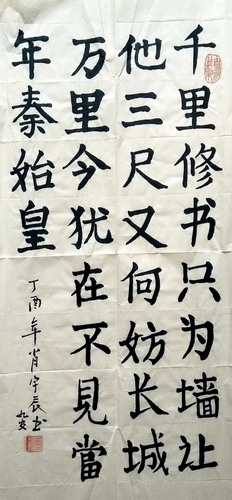 千里修书只为墙让
他三尺又何妨长城
万里今犹在不見當
年秦始皇
丁酉年肖宇辰书